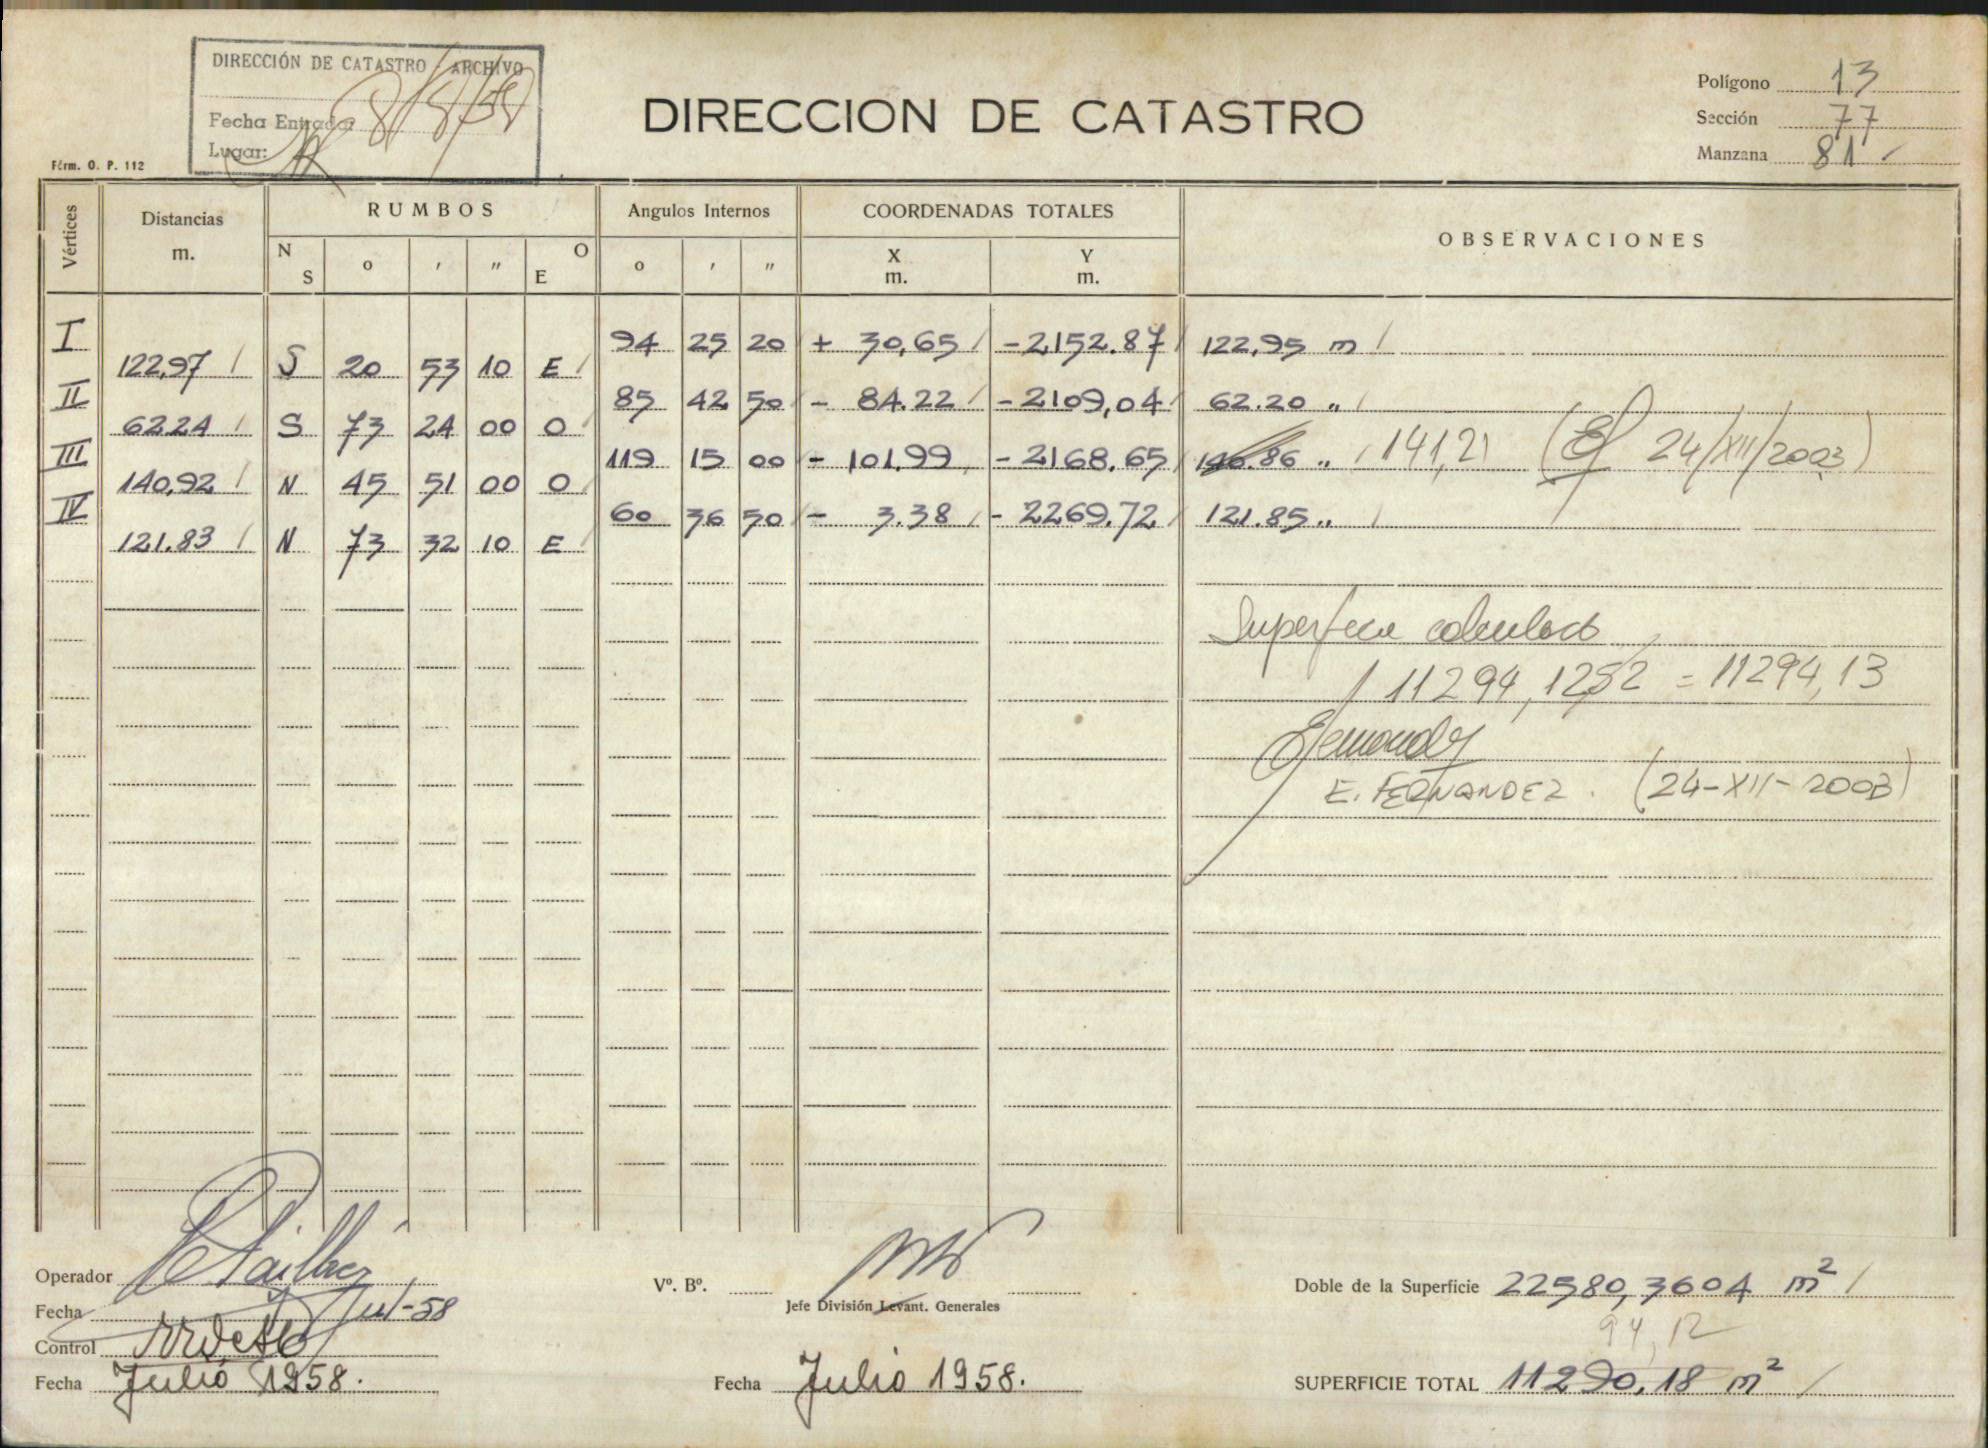 DIRECCIÓN DE CATASTRO - ARCHIVO
Fecha Entrada: 8/8/58
Lugar:
Fórm. O. P. 112
DIRECCION DE CATASTRO
Polígono 13
Sección 77
Manzana 81
Vértices Distancias m. RUMBOS Angulos Internos COORDENADAS TOTALES OBSERVACIONES
N S o ' " O E o ' " X m. Y m.
I 94 25 20 + 30,65 -2152.87 122,95 m
122,97 S 20 53 10 E
II 85 42 50 - 84.22 -2109,04 62.20 "
62.24 S 73 24 00 O
III 119 15 00 - 101.99 -2168.65 140.86 " 141,21 (Ef 24/XII/2003)
140,92 N 45 51 00 O
IV 60 36 50 - 3.38 -2269.72 121.85 "
121.83 N 73 32 10 E
Superficie calculada
11294,1252 = 11294,13
E. FERNANDEZ. (24-XII-2003)
Operador
Fecha Jul-58
Control
Fecha Julio 1958.
Vº. Bº.
Jefe División Levant. Generales
Fecha Julio 1958.
Doble de la Superficie 22580,3604 m²
94,12
SUPERFICIE TOTAL 11290.18 m²